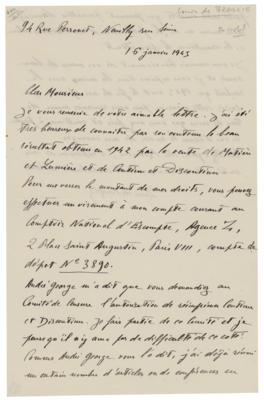 94 Rue Perronet, Neuilly sur Seine
15 janvier 1943
Cher Monsieur
Je vous remercie de votre aimable lettre. J'ai été
très heureux de connaître par son contenu le beau
résultat obtenu en 1942 par la vente de Matière
et Lumière et de Continu et Discontinu
Pour me verser le montant de mes droits, vous pouvez
effectuer un virement à mon compte courant au
Comptoir National d'Escompte, Agence
2 Place Saint Augustin, Paris VIII, compte de
dépôt N° 3890.
André George m'a dit que vous demandiez au
Comité de Censure l'autorisation de réimprimer Continu
et Discontinu. Je fais partie de ce Comité et je
pense qu'il n'y aura pas de difficultés de ce côté.
Comme André George vous l'a dit, j'ai déjà réuni
un certain nombre d'articles ou de conférences en